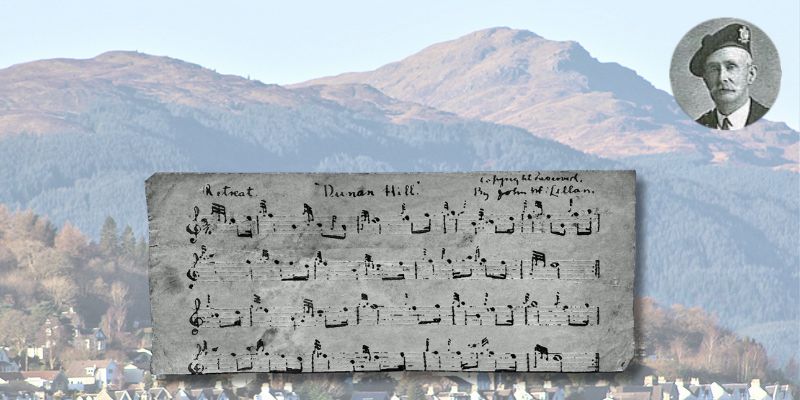 Copyright Reserved.
Retreat. "Dunan Hill." By John McLellan.